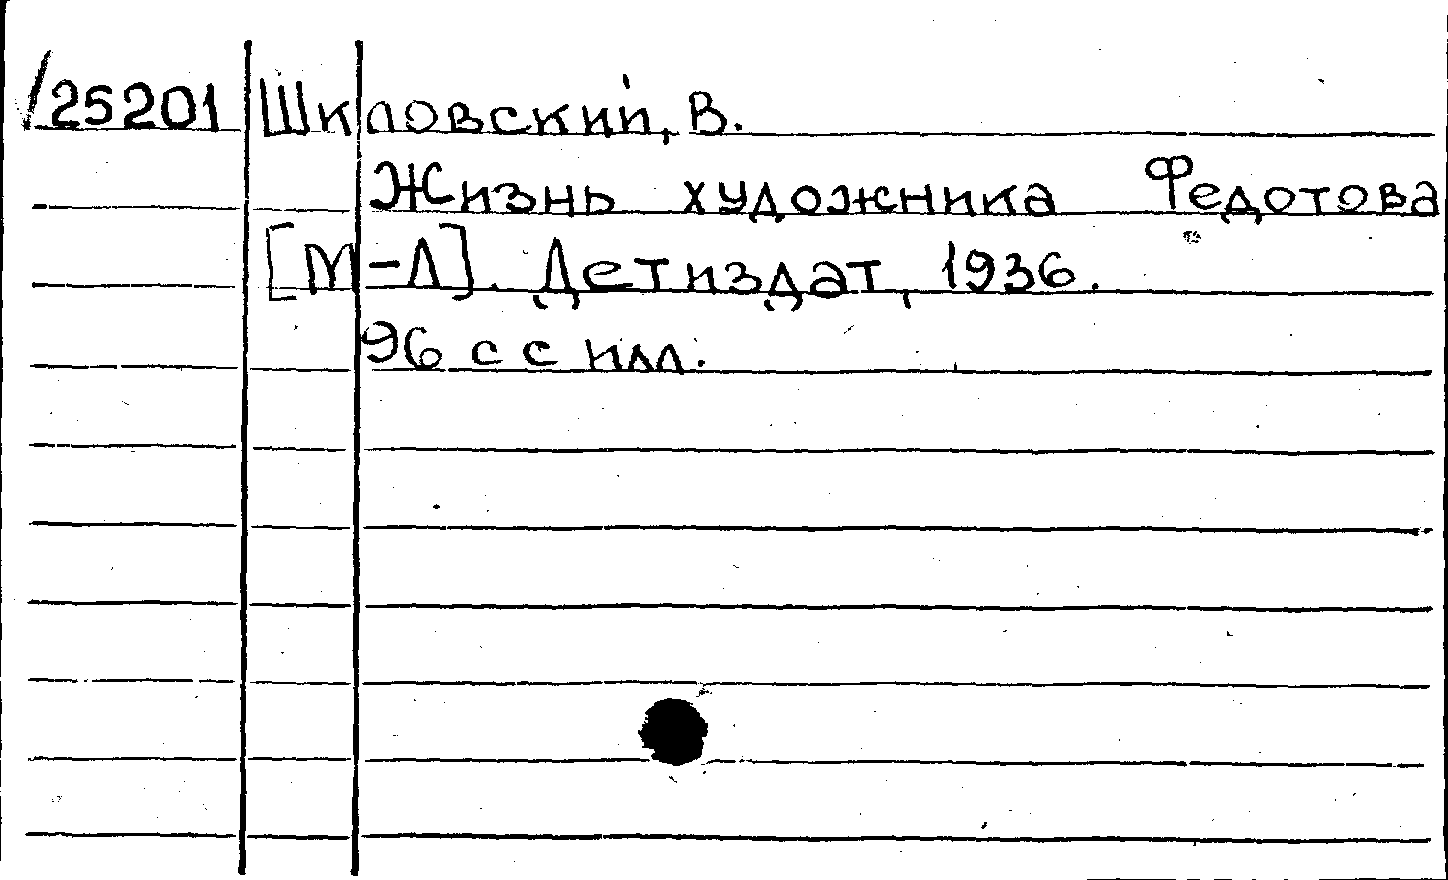 /25201 Шкловский, В.
Жизнь художника Федотова
[М-Л]. Детиздат, 1936.
96 с с илл.